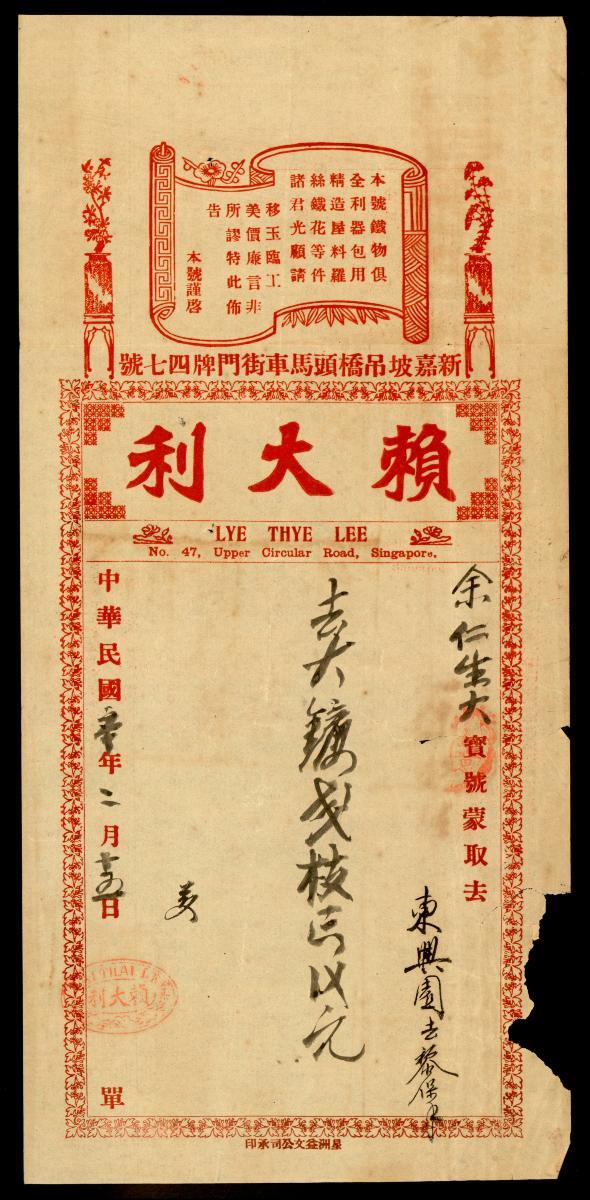 本號鐵物俱
全利器包用
精造屋料羅
絲鐵花等件
諸君光顧請
移玉臨工
美價廉言非
所謬特此佈
告
本號謹啓
新嘉坡吊橋頭馬車街門牌四七號
賴大利
LYE THYE LEE
No. 47, Upper Circular Road, Singapore.
余仁生大寶號蒙取去
東興園去黎保
枝 元
中華民國 年二月十五日
單
賴大利
星洲益文公司承印